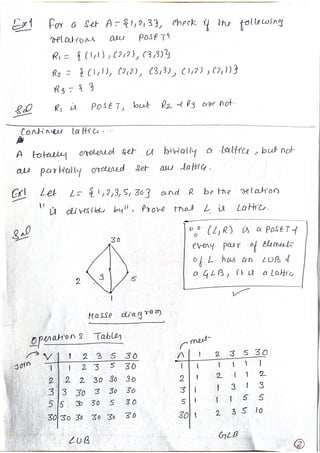 Ex1 For a Set A = {1,2,3}, check if the following
relations are POSET?
R₁ = { (1,1), (2,2), (3,3)}
R₂ = { (1,1), (2,2), (3,3), (1,2), (2,1)}
R₃ = { }
Sol R₁ is POSET, but R₂ & R₃ are not.
Continue lattice...
A totally ordered set is trivially a lattice, but not
all partially ordered set are lattice.
Ex1 Let L = {1,2,3,5,30} and R be the relation
"is divisible by". Prove that L is Lattice.
Sol
30
2 3 5
1
Hasse diagram
∵ (L,R) is a POSET &
every pair of elements
of L has an LUB &
a GLB, it is a Lattice
Operations Tables
Join
V 1 2 3 5 30
1 1 2 3 5 30
2 2 2 30 30 30
3 3 30 3 30 30
5 5 30 30 5 30
30 30 30 30 30 30
LUB
meet
Λ 1 2 3 5 30
1 1 1 1 1 1
2 1 2 1 1 2
3 1 1 3 1 3
5 1 1 1 5 5
30 1 2 3 5 10
GLB
2